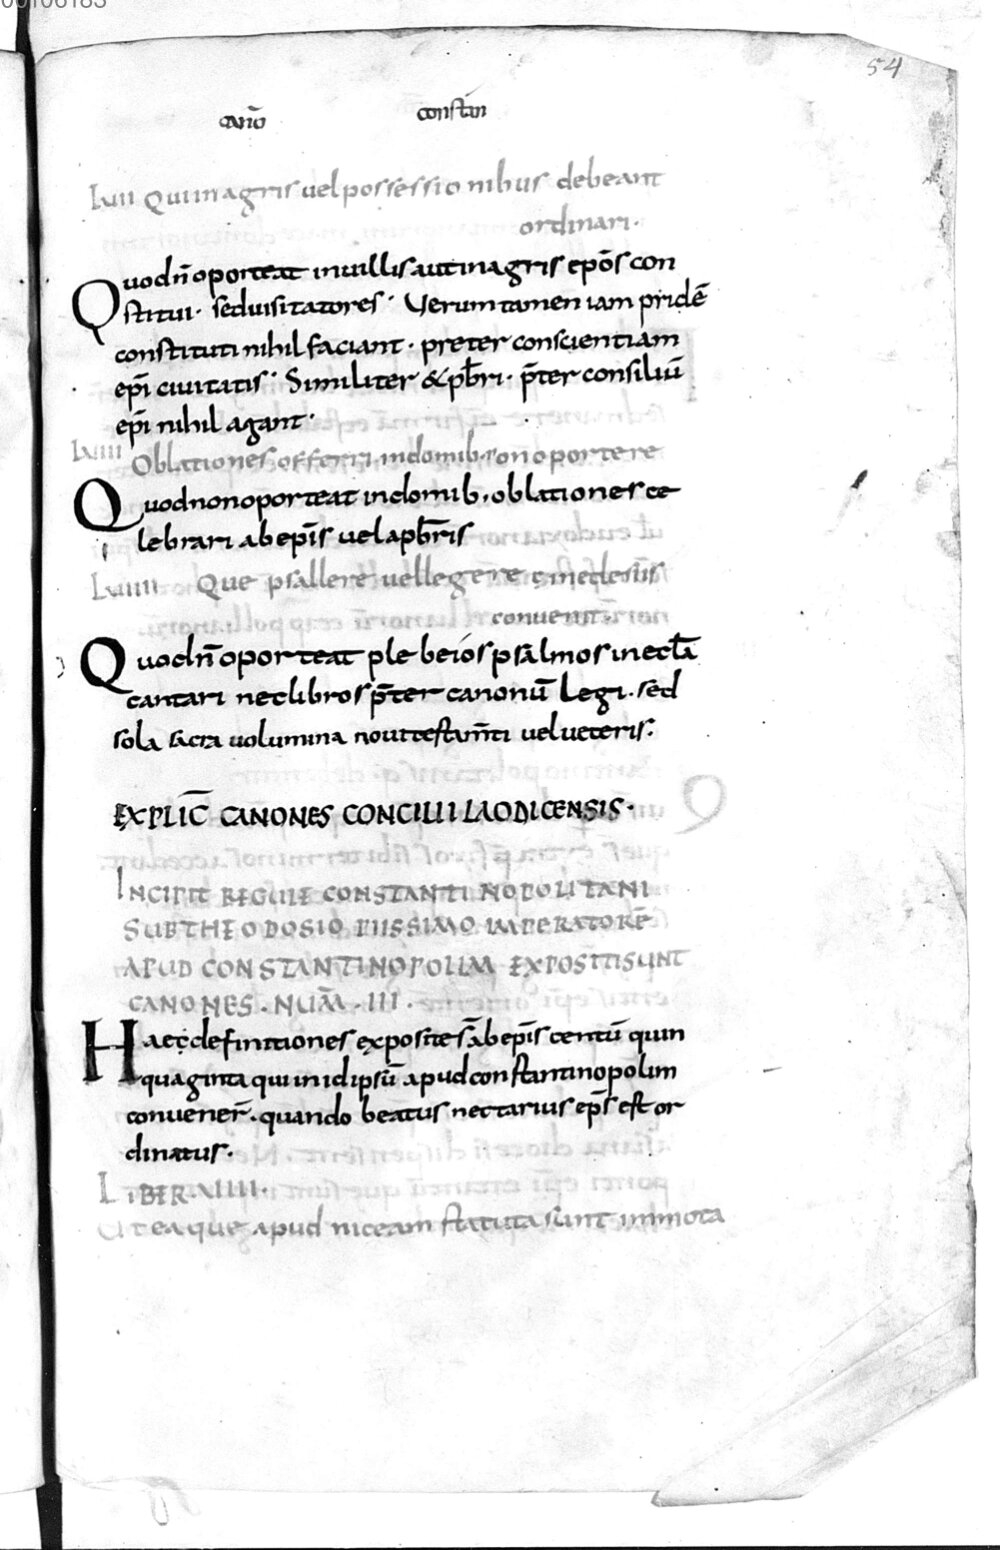 54
cano̅ constan̅
lvii Qui in agris vel possessionibus debeant
ordinari.
Quod n̅ oporteat in villis aut in agris ep̅os con
stitui. sed visitatores. Verum tamen iam pride̅
constituti nihil faciant. preter conscientiam
ep̅i civitatis. Similiter & pb̅ri. p̅ter consiliu̅
ep̅i nihil agant.
lviii Oblationes offerri in domib; non oportere
Quod non oporteat in domib; oblationes ce
lebrari ab ep̅is vel a pb̅ris
lviiii Que psallere vel legere in eclesiis
convenit.
Quod n̅ oporteat plebeios psalmos in ecl̅a
cantari nec libros p̅ter canonu̅ legi. sed
sola sacra volumina novi testam̅ti vel veteris.
EXPLIC̅ CANONES CONCILII LAODICENSIS.
INCIPIT REGULE CONSTANTINOPOLITANI
SUB THEODOSIO PIISSIMO IMPERATORE
APUD CONSTANTINOPOLIM EXPOSITI SUNT
CANONES. NUM̅. III.
Haec definitiones exposite s̅ ab ep̅is centu̅ quin
quaginta qui in idipsu̅ apud constantinopolim
convener̅. quando beatus nectarius ep̅s est or
dinatus.
LIBER. VIIII.
Ut ea que apud niceam statuta sunt immota